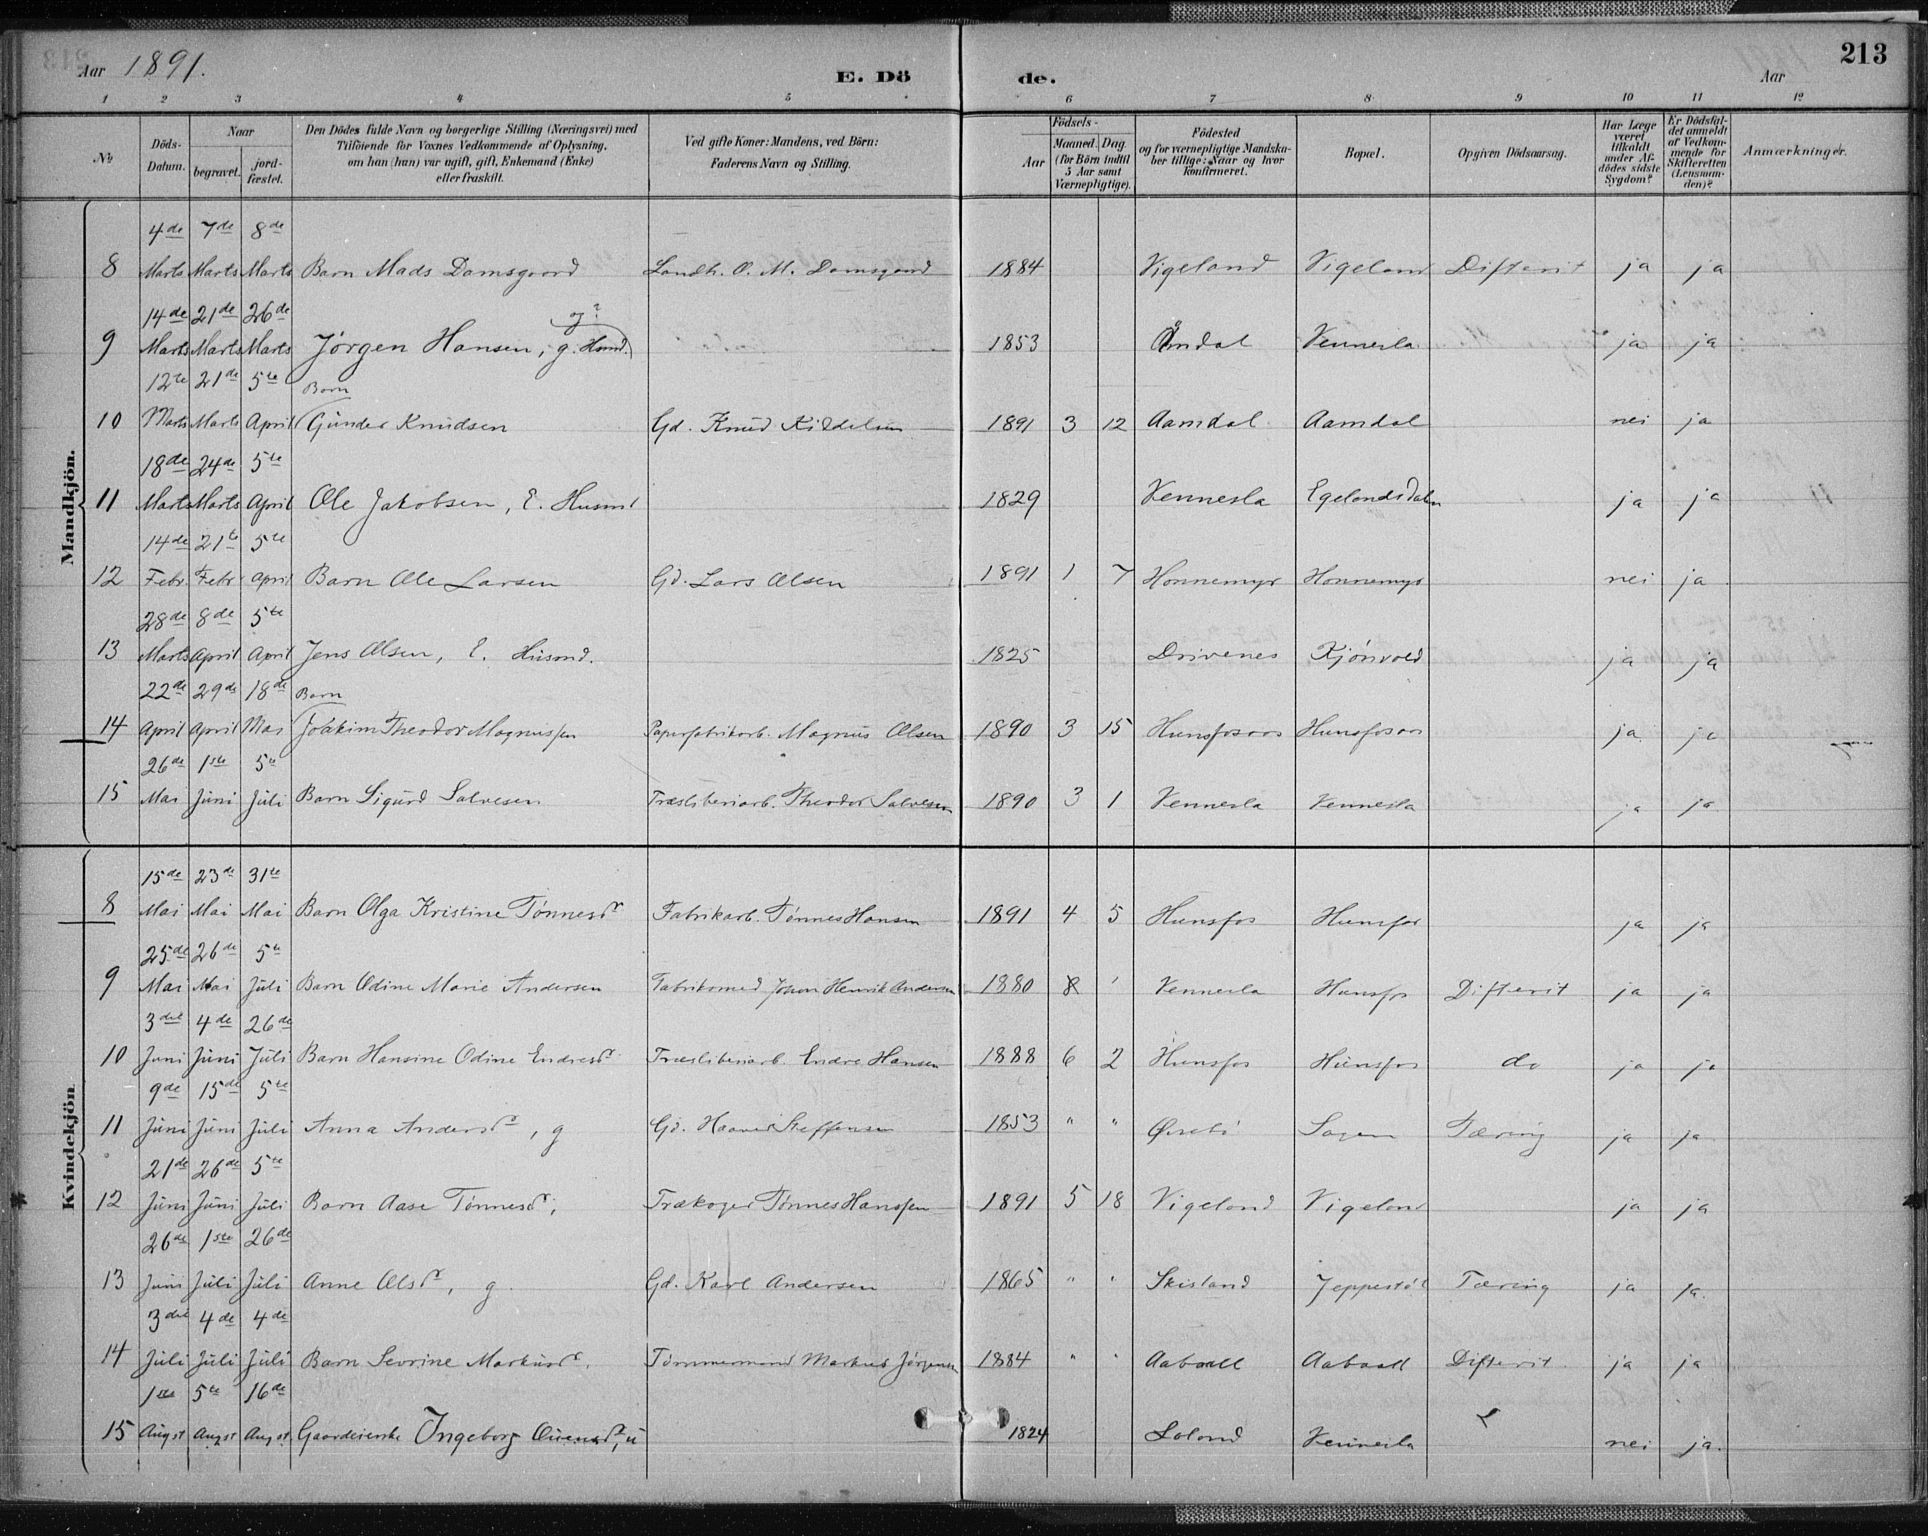 Aar 1891. E. Dö de. Aar 213
1 2 3 4 5 6 7 8 9 10 11 12
№ Döds-Datum. Naar begravet. jord-fæstet. Den Dödes fulde Navn og borgerlige Stilling (Næringsvei) med Tilföiende for Voxnes Vedkommende af Oplysning, om han (hun) var ugift, gift, Enkemand (Enke) eller fraskilt. Ved gifte Koner: Mandens, ved Börn: Faderens Navn og Stilling. Födsels- Aar Maaned. Dag (for Börn indtil 5 Aar samt Værnepligtige). Födested og for værnepligtige Mandskaber tillige: Naar og hvor konfirmeret. Bopæl. Opgiven Dödsaarsag. Har Læge været tilkaldt under Afdödes sidste Sygdom? Er Dödsfaldet anmeldt af Vedkommende for Skifteretten (Lensmanden)? Anmærkninger.
Mandkjön.
4de 7de 8de
8 Marts Marts Marts Barn Mads Damsgaard Landh. O. M. Damsgaard 1884 Vigeland Vigeland Difterit ja ja
14de 21de 26de
9 Marts Marts Marts Jörgen Hansen, g. Husmd. 1853 Omdal Vennesla ja ja
12te 21de 5te Barn
10 Marts Marts April Gunder Knudsen Gd. Knud Kiddelsen 1891 3 12 Aamdal Aamdal nei ja
18de 24de 5te
11 Marts Marts April Ole Jakobsen, E. Husmd 1829 Vennesla Egelandsdalen ja ja
14de 21te 5te
12 Febr. Febr April Barn Ole Larsen Gd. Lars Olsen 1891 1 7 Honnemyr Honnemyr nei ja
28de 8de 5te
13 Marts April April Jens Olsen, E. Husmd. 1825 Drivenes Kjönvold ja ja
22de 29de 18de Barn
14 April April Mai Joakim Theodor Magnussen Papirfabrikarb. Magnus Olsen 1890 3 15 Hunsfosaas Hunsfosaas ja ja
26de 1ste 5te
15 Mai Juni Juli Barn Sigurd Salvesen Træsliberiarb. Theodor Salvesen 1890 3 1 Vennesla Vennesla ja ja
Kvindekjön
15de 23de 31te
8 Mai Mai Mai Barn Olga Kristine Tönnesdr Fabrikarb. Tönnes Hansen 1891 4 5 Hunsfos Hunsfos ja ja
25de 26de 5te
9 Mai Mai Juli Barn Odine Marie Andersen Johan Henrik Andersen 1880 8 Vennesla Hunsfos Difterit ja ja
3die 4de 26de
10 Juni Juni Juli Barn Hansine Odine Endresdr Træsliberiarb. Endre Hansen 1888 6 2 Hunsfos Hunsfos do ja ja
9de 15de 5te
11 Juni Juni Juli Anna Andersdr, g Gd. Steffensen 1853 " " Tæring ja ja
21de 26de 5te
12 Juni Juni Juli Barn Aase Tönnesdr, Trækoger Tönnes Hanssen 1891 5 18 Vigeland Vigeland ja ja
26de 1ste 26de
13 Juni Juli Juli Anne Olsdr, g. Gd. Karl Andersen 1865 " " Skisland Jeppestöl Tæring ja ja.
3die 4de 4de
14 Juli Juli Juli Barn Sevrine Markusdr, Tömmermand Markus Jörgensen 1884 " " Aabaall Aabaall Difterit ja ja
1ste 5te 16de
15 Augst Augst Augst Ingeborg 1824 Loland Vennesla nei ja.